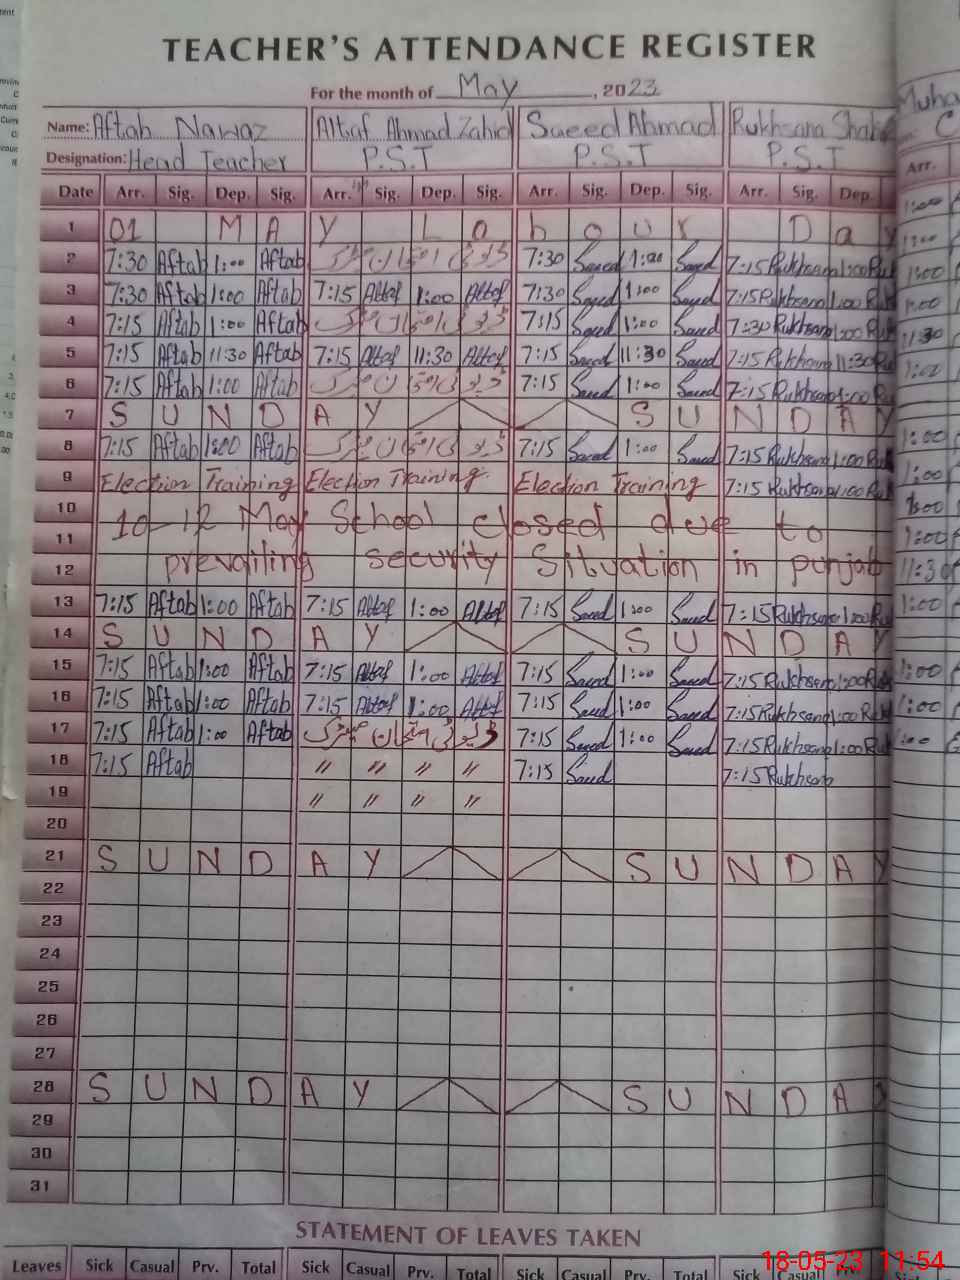 TEACHER'S ATTENDANCE REGISTER
For the month of May, 2023
Name: Aftab Nawaz Altaf Ahmad Zahid Saeed Ahmad Rukhsana
Designation: Head Teacher P.S.T P.S.T P.S.T
Date Arr. Sig. Dep. Sig. Arr. Sig. Dep. Sig. Arr. Sig. Dep. Sig. Arr. Sig. Dep. Arr.
1 01 MAY Labour Day
2 7:30 Aftab 1:00 Aftab 7:30 Saeed 1:00 Saeed 7:15 Rukhsana 1:00
3 7:30 Aftab 1:00 Aftab 7:15 Altaf 1:00 Altaf 7:30 Saeed 1:00 Saeed 7:15 Rukhsana 1:00
4 7:15 Aftab 1:00 Aftab 7:15 Saeed 1:00 Saeed 7:30 Rukhsana 1:00
5 7:15 Aftab 11:30 Aftab 7:15 Altaf 11:30 Altaf 7:15 Saeed 11:30 Saeed 7:15 Rukhsana 11:30
6 7:15 Aftab 1:00 Aftab 7:15 Saeed 1:00 Saeed 7:15 Rukhsana 1:00
7 SUNDAY SUNDAY
8 7:15 Aftab 1:00 Aftab 7:15 Saeed 1:00 Saeed 7:15 Rukhsana 1:00
9 Election Training Election Training Election Training 7:15 Rukhsana 1:00
10 10-12 May School closed due to
11
12 prevailing security Situation in punjab
13 7:15 Aftab 1:00 Aftab 7:15 Altaf 1:00 Altaf 7:15 Saeed 1:00 Saeed 7:15 Rukhsana 1:00
14 SUNDAY SUNDAY
15 7:15 Aftab 1:00 Aftab 7:15 Altaf 1:00 Altaf 7:15 Saeed 1:00 Saeed 7:15 Rukhsana 1:00
16 7:15 Aftab 1:00 Aftab 7:15 Altaf 1:00 Altaf 7:15 Saeed 1:00 Saeed 7:15 Rukhsana 1:00
17 7:15 Aftab 1:00 Aftab ڈیوٹی امتحان میٹرک 7:15 Saeed 1:00 Saeed 7:15 Rukhsana 1:00
18 7:15 Aftab 〃 〃 〃 〃 7:15 Saeed 7:15 Rukhsana
19 〃 〃 〃 〃
20
21 SUNDAY SUNDAY
22
23
24
25
26
27
28 SUNDAY SUNDAY
29
30
31
STATEMENT OF LEAVES TAKEN
Leaves Sick Casual Prv. Total Sick Casual Prv. Total Sick Casual Prv. Total Sick Casual
18-05-23 11:54